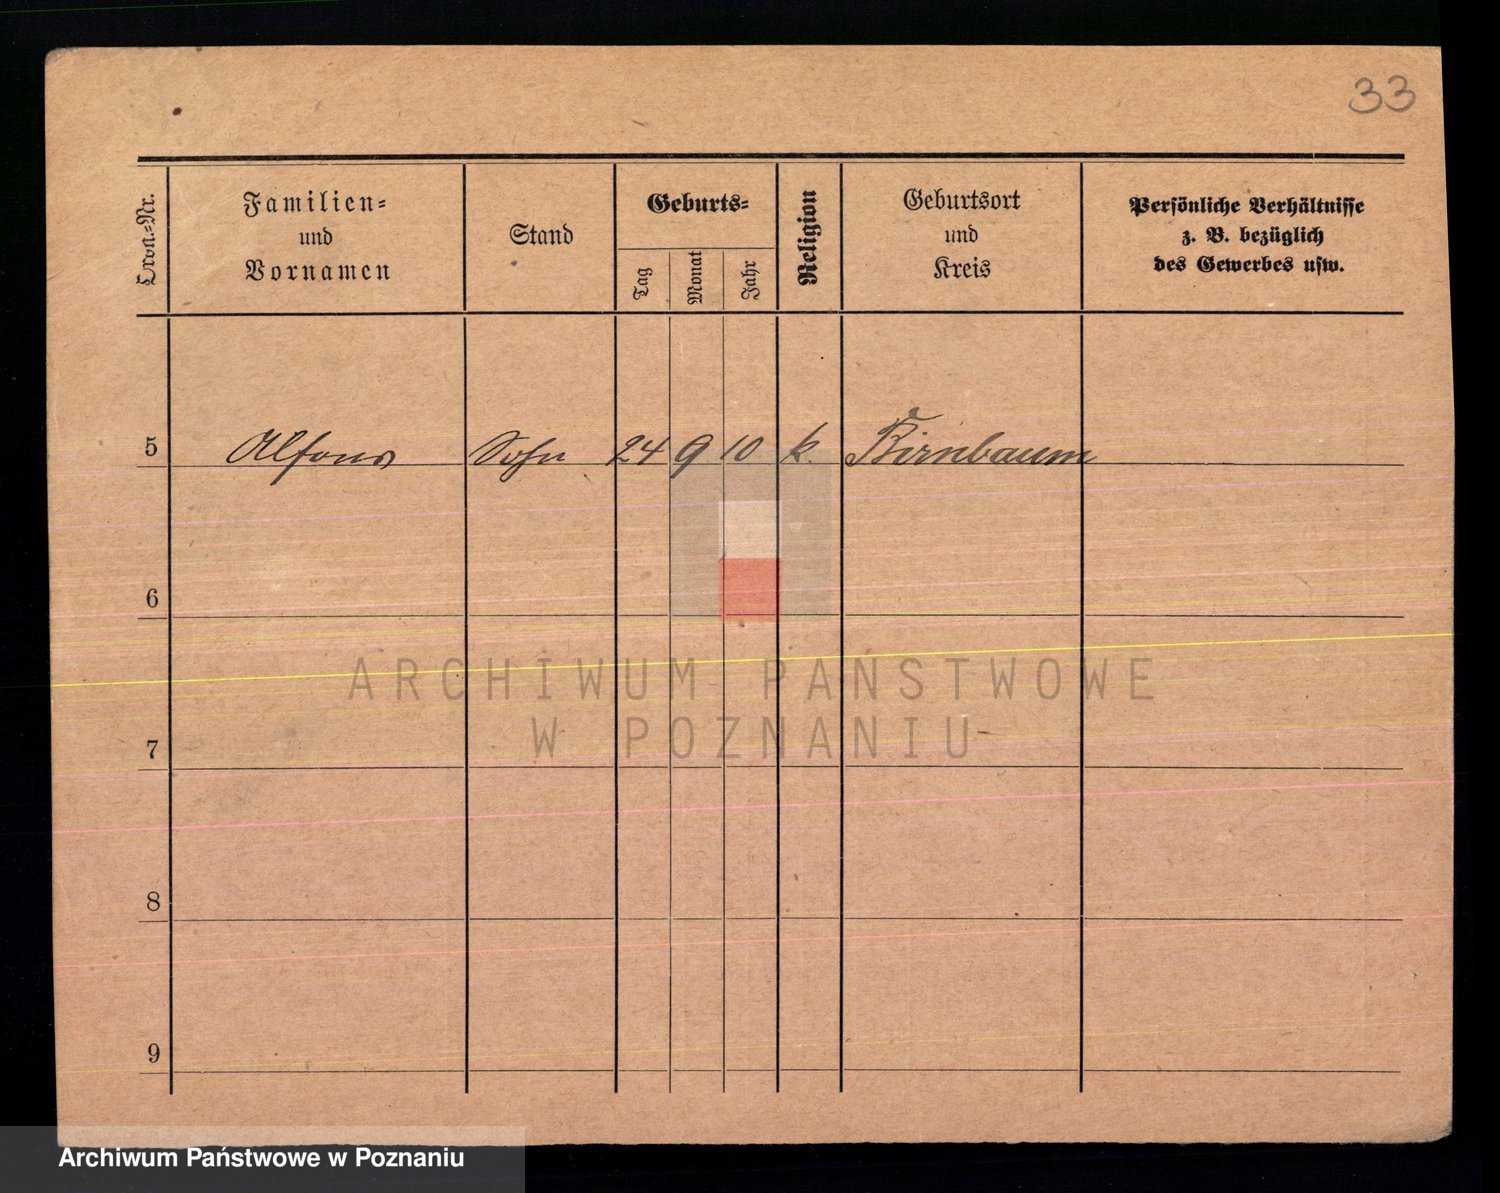 33
Ordn.-Nr.
Familien-
und
Vornamen
Stand
Geburts-
Tag
Monat
Jahr
Religion
Geburtsort
und
Kreis
Persönliche Verhältnisse
z. B. bezüglich
des Gewerbes usw.
5 Alfons Sohn 24 9 10 k. Birnbaum
6
7
8
9
ARCHIWUM PAŃSTWOWE
W POZNANIU
Archiwum Państwowe w Poznaniu